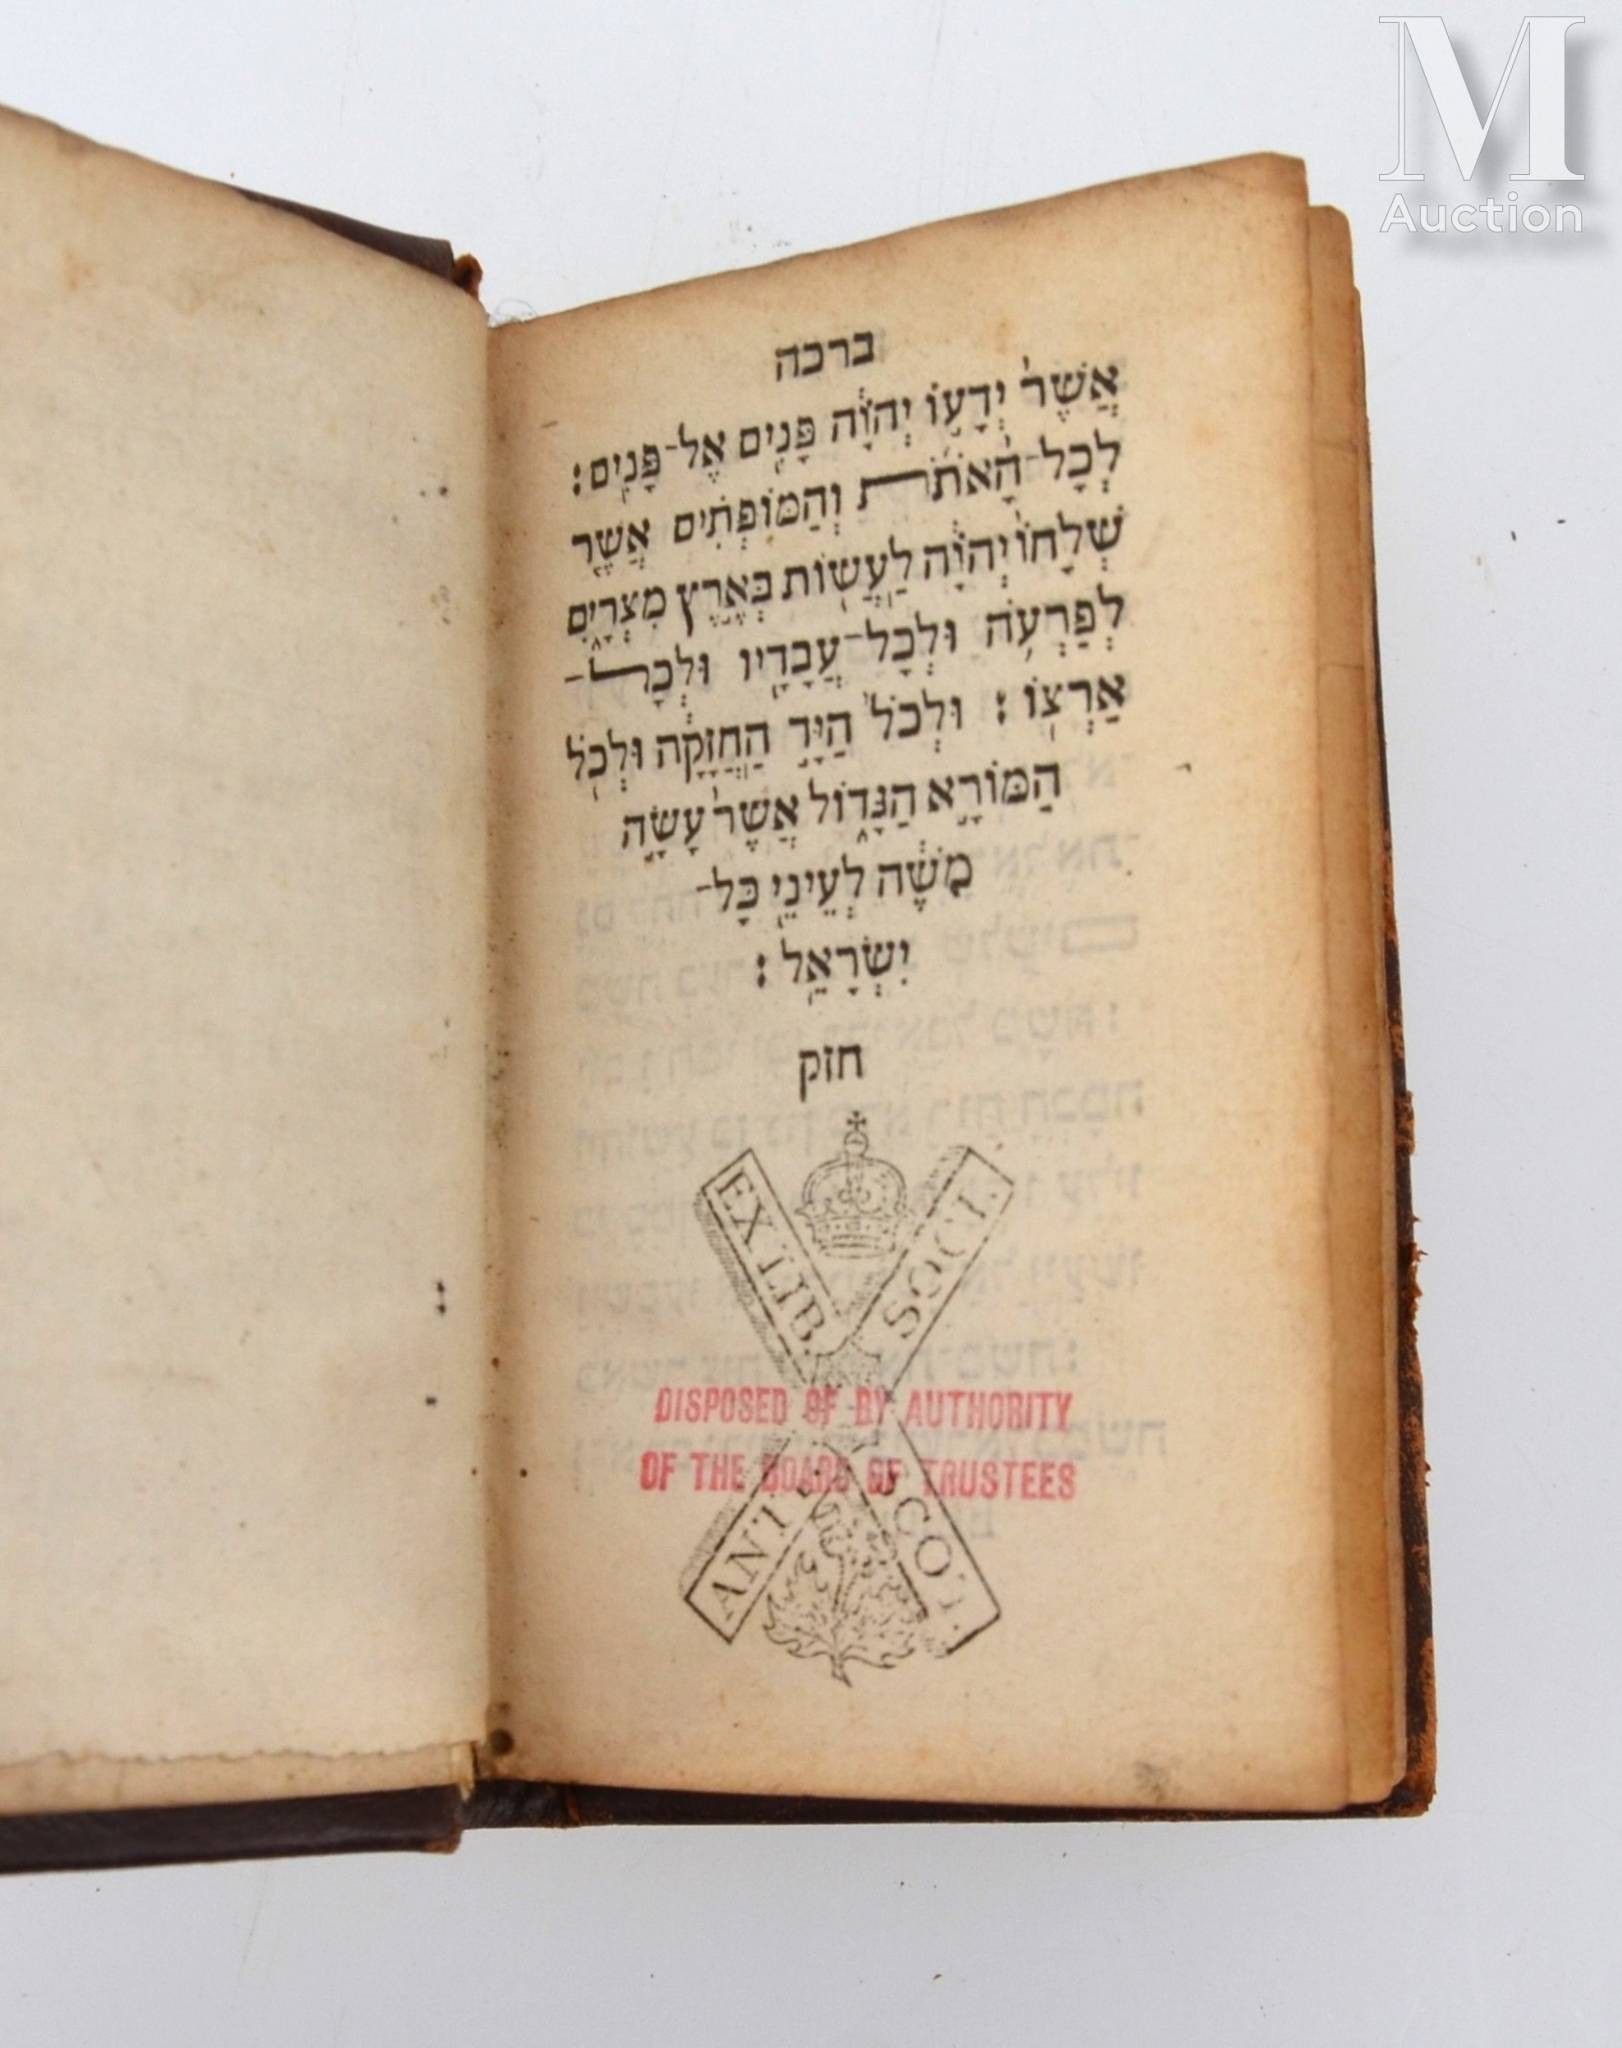 M
Auction
ברכה
אֲשֶׁר֙ יְדָע֣וֹ יְהוָֹ֔ה פָּנִ֖ים אֶל־פָּנִֽים׃
לְכָל־הָ֨אֹתֹ֜ת וְהַמּוֹפְתִ֗ים אֲשֶׁ֤ר
שְׁלָחוֹ֙ יְהוָֹ֔ה לַעֲשׂ֖וֹת בְּאֶ֣רֶץ מִצְרָ֑יִם
לְפַרְעֹ֥ה וּלְכָל־עֲבָדָ֖יו וּלְכָל־
אַרְצֽוֹ׃ וּלְכֹל֙ הַיָּ֣ד הַחֲזָקָ֔ה וּלְכֹ֖ל
הַמּוֹרָ֣א הַגָּד֑וֹל אֲשֶׁר֙ עָשָׂ֣ה
מֹשֶׁ֔ה לְעֵינֵ֖י כָּל־
יִשְׂרָאֵֽל׃
חזק
EX LIB. SOCI.
DISPOSED OF BY AUTHORITY
OF THE BOARD OF TRUSTEES
ANT. SCOT.